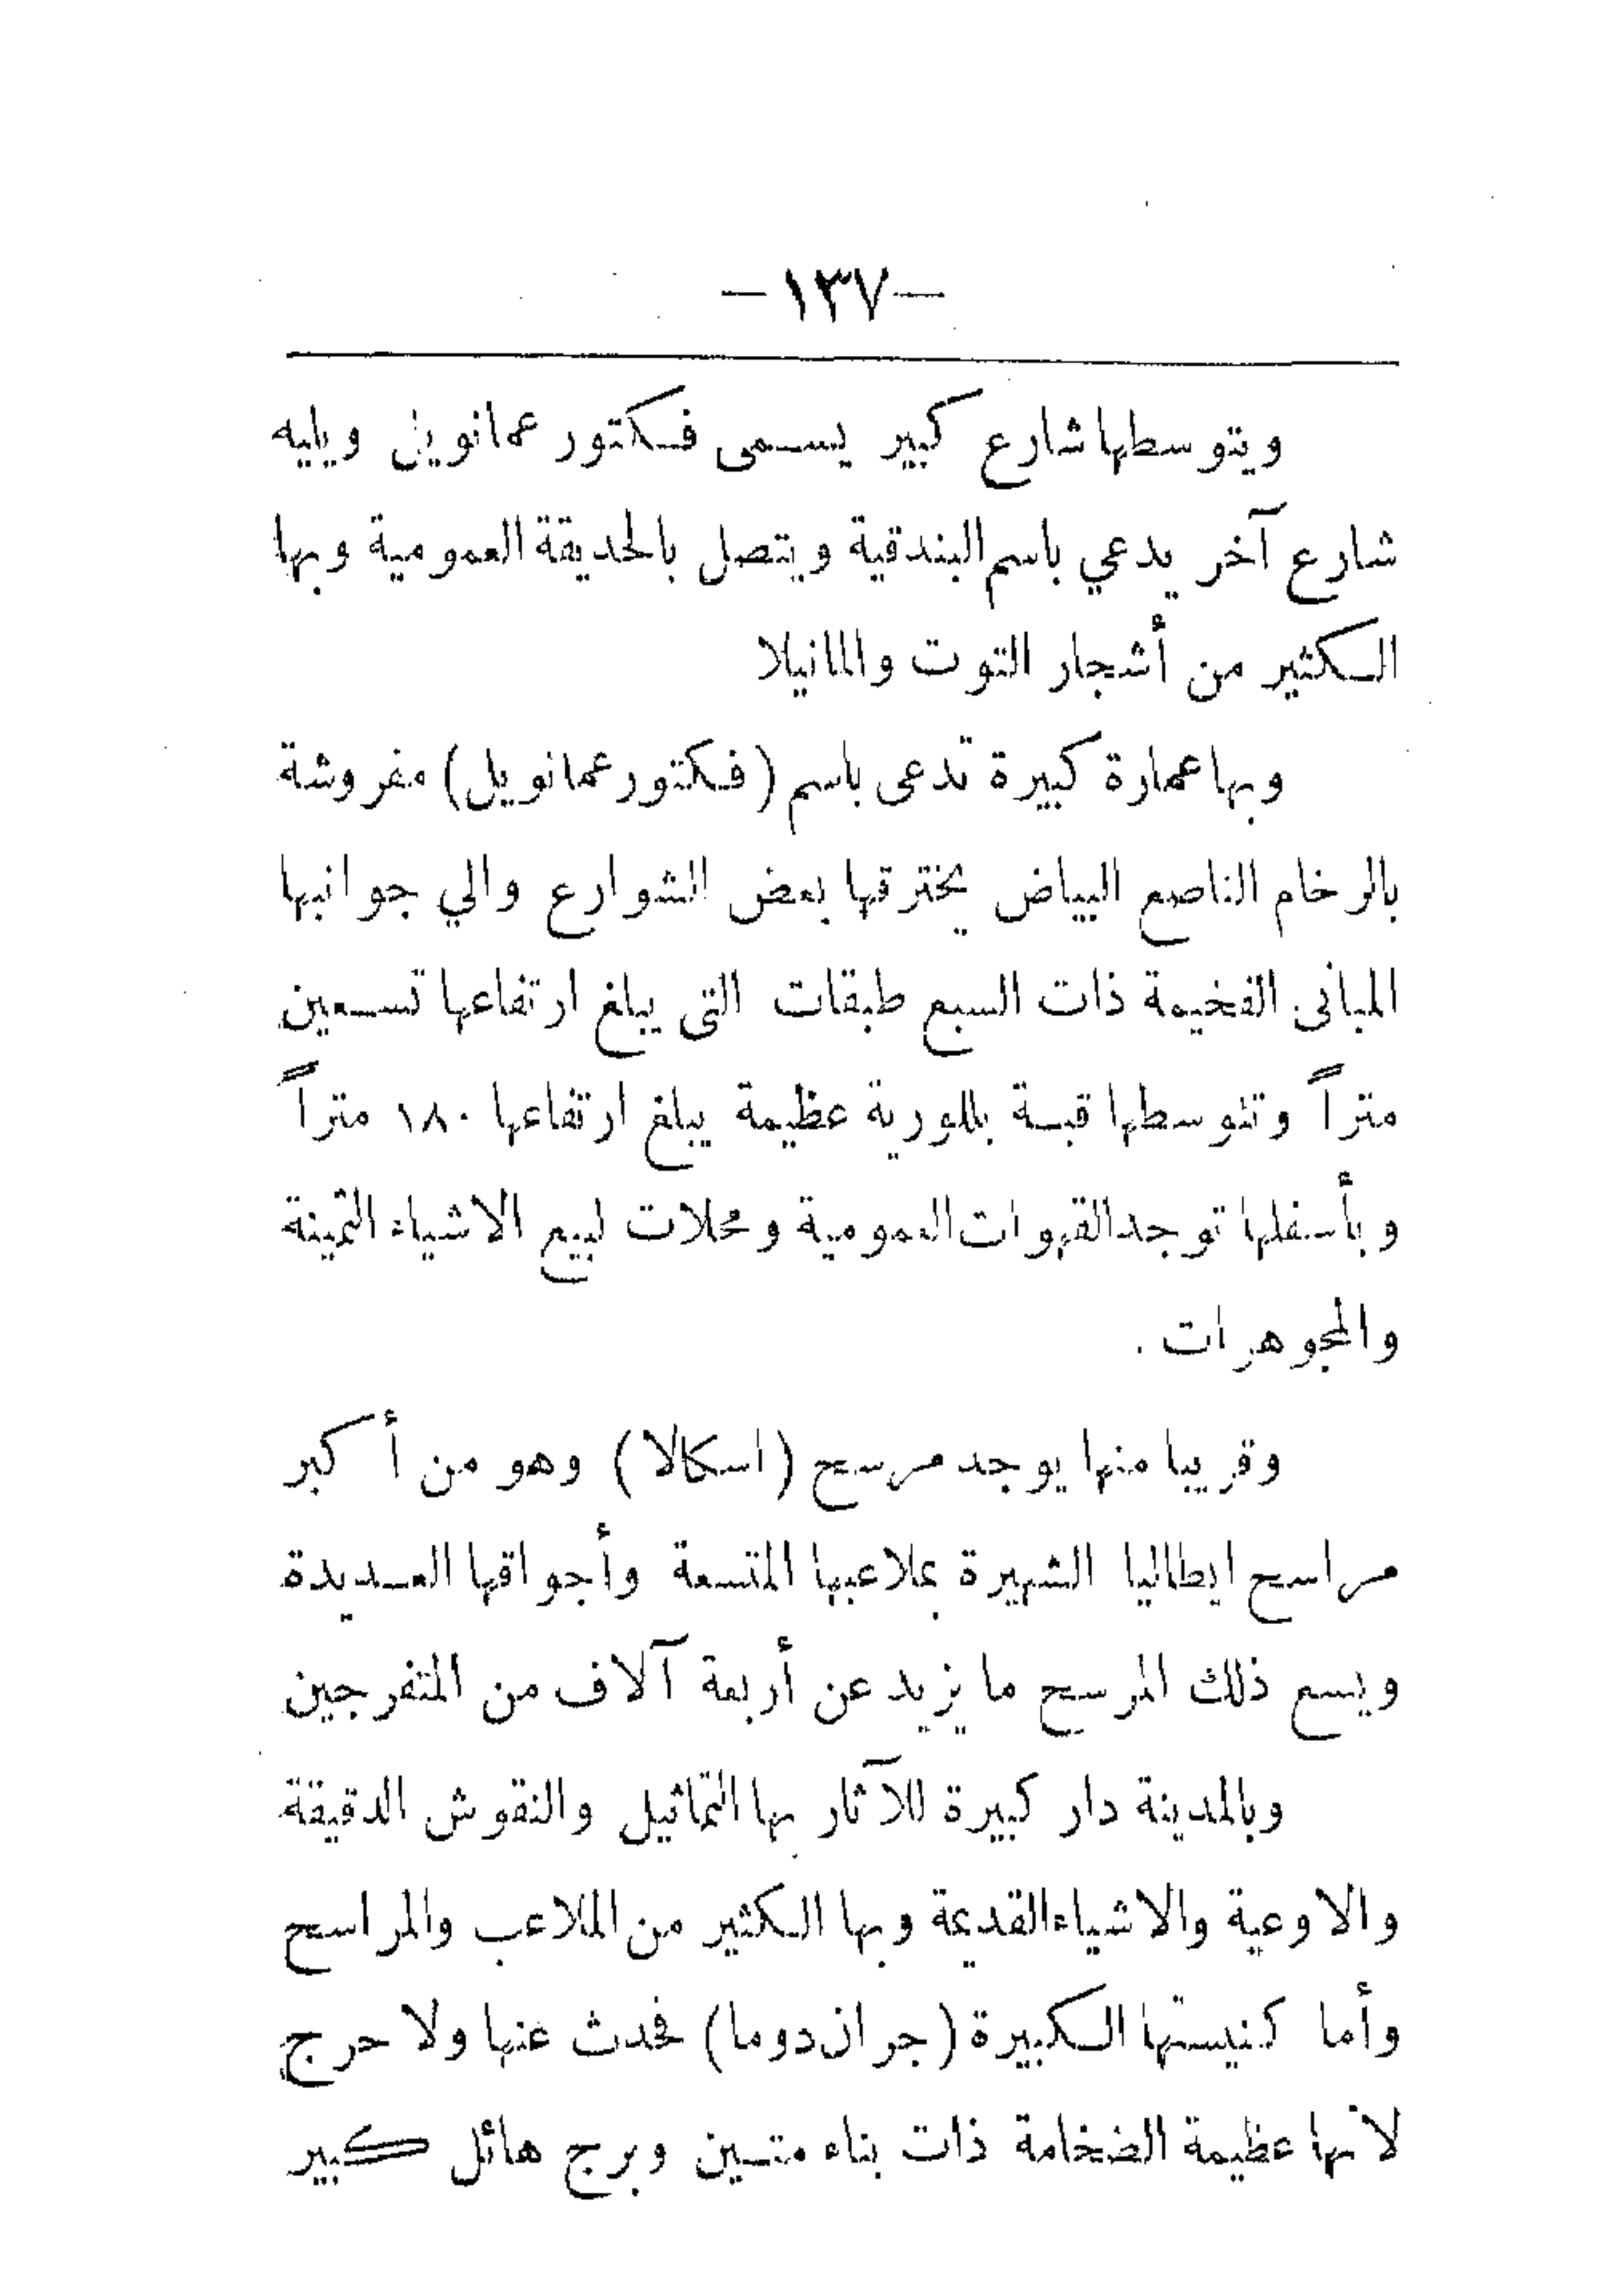 —١٣٧—
ويتوسطها شارع كبير يسمى فكتور عمانويل ويليه
شارع آخر يدعي باسم البندقية ويتصل بالحديقة العمومية وبها
الكثير من أشجار التوت والمانيلا
وبها عمارة كبيرة تدعى باسم (فكتور عمانويل) مفروشة
بالرخام الناصع البياض يخترقها بعض الشوارع والي جوانبها
المبانى الفخيمة ذات السبع طبقات التى يبلغ ارتفاعها تسعين
متراً وتتوسطها قبة بللورية عظيمة يبلغ ارتفاعها ١٨٠ متراً
وبأسفلها توجد القهوات العمومية ومحلات لبيع الاشياء الثمينة
والمجوهرات .
وقريبا منها يوجد مرسح (اسكالا) وهو من أكبر
مراسح ايطاليا الشهيرة بملاعبها المتسعة وأجواقها العديدة
ويسع ذلك المرسح ما يزيد عن أربعة آلاف من المتفرجين
وبالمدينة دار كبيرة للآثار بها التماثيل والنقوش الدقيقة
والاوعية والاشياء القديمة وبها الكثير من الملاعب والمراسح
وأما كنيستها الكبيرة (جران دوما) فحدث عنها ولا حرج
لانها عظيمة الضخامة ذات بناء متين وبرج هائل كبير